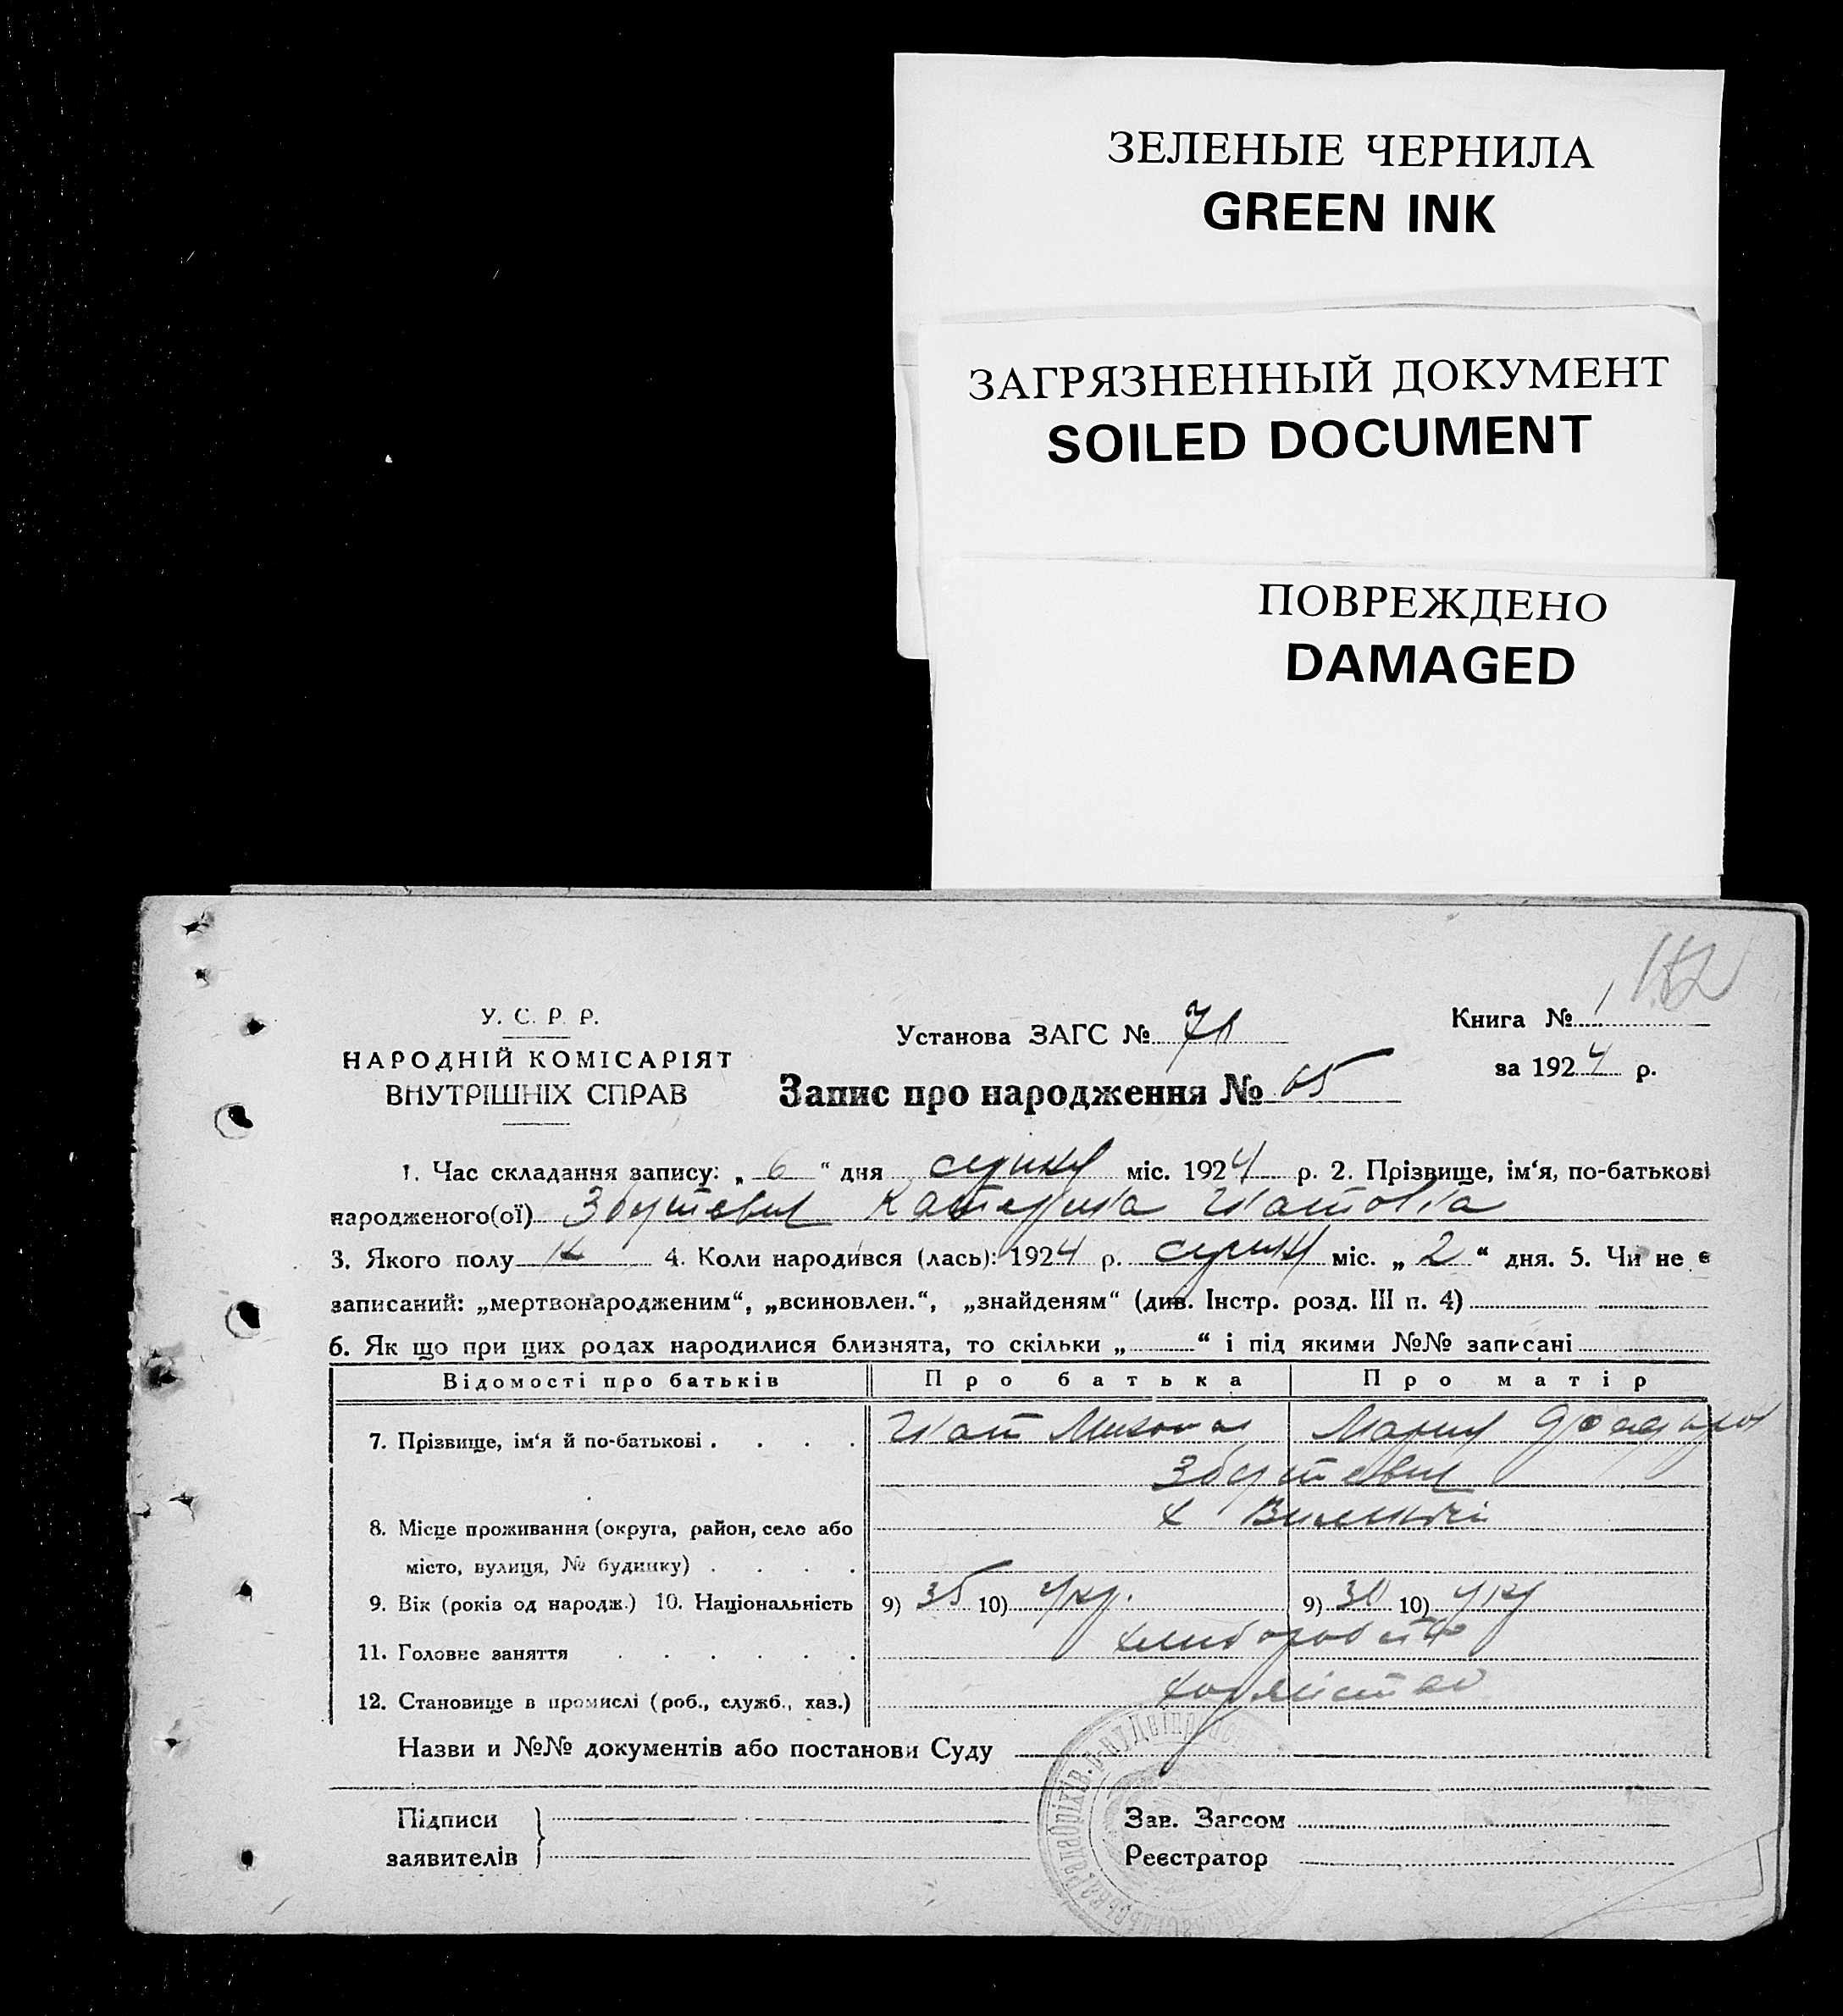 ЗЕЛЕНЫЕ ЧЕРНИЛА
GREEN INK
ЗАГРЯЗНЕННЫЙ ДОКУМЕНТ
SOILED DOCUMENT
ПОВРЕЖДЕНО
DAMAGED
У. С. Р. Р.
НАРОДНІЙ КОМІСАРІЯТ
ВНУТРІШНІХ СПРАВ
Установа ЗАГС №
Книга № 1
за 1924 р.
Запис про народження № 65
1. Час складання запису: „ 6 “ дня міс. 1924 р. 2. Прізвище, ім‘я, по-батькові
народженого(ої) Катерина
3. Якого полу 4. Коли народився (лась): 1924 р. міс. „ 2 “ дня. 5. Чи не є
записаний: „мертвонародженим“, „всиновлен.“, „знайденям“ (див. Інстр. розд. III п. 4)
6. Як що при цих родах народилися близнята, то скільки „ “ і під якими №№ записані
Відомості про батьків Про батька Про матір
7. Прізвище, ім‘я й по-батькові
8. Місце проживання (округа, район, село або
місто, вулиця, № будинку)
9. Вік (років од народж.) 10. Національність 9) 35 10) укр. 9) 30 10) укр
11. Головне заняття
12. Становище в промислі (роб., служб., хаз.)
Назви и №№ документів або постанови Суду
Підписи
заявителів
Зав. Загсом
Реєстратор